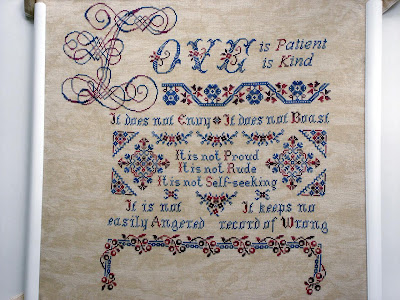 Love is Patient
is Kind
It does not Envy It does not Boast
It is not Proud
It is not Rude
It is not Self-seeking
It is not It keeps no
easily Angered record of Wrong